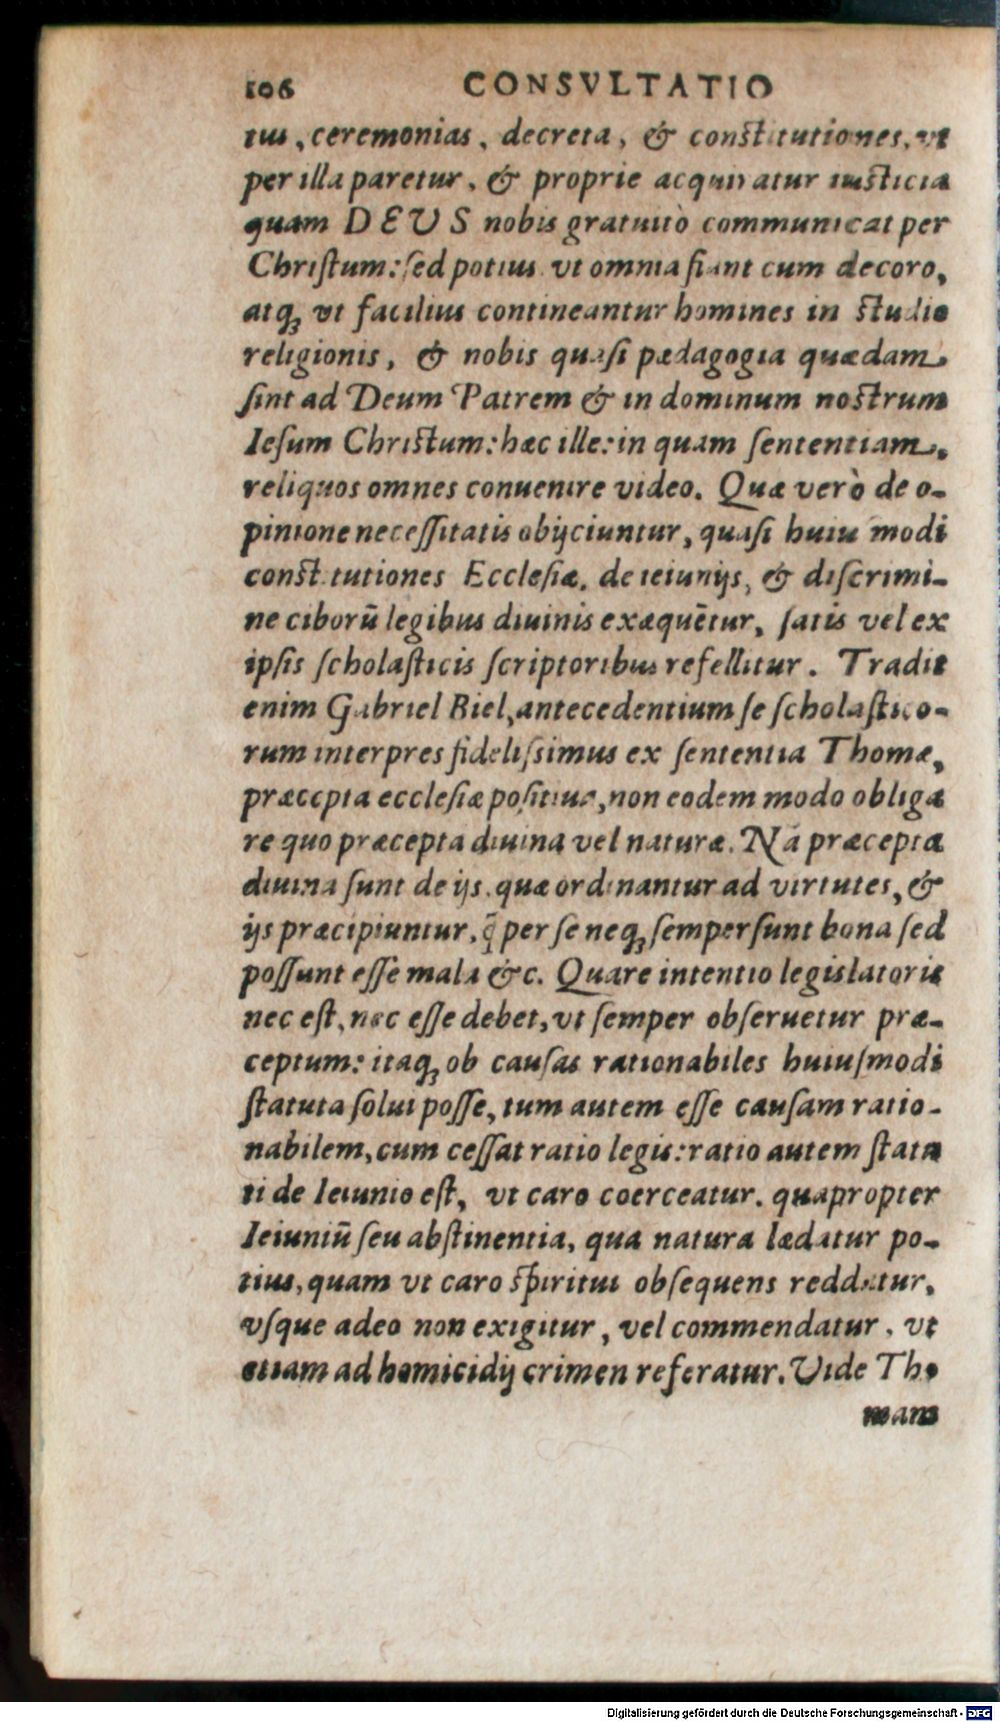 106 CONSVLTATIO
tus, ceremonias, decreta, & constitutiones, vt
per illa paretur, & proprie acquiratur iusticia
quam DEUS nobis gratuitò communicat per
Chriſtum: ſed potius vt omnia fiant cum decoro,
atqꝫ vt facilius contineantur homines in studio
religionis, & nobis quaſi pædagogia quædam
ſint ad Deum Patrem & in dominum nostrum
Ieſum Christum: hæc ille: in quam ſententiam,
reliquos omnes conuenire video. Quæ verò de o-
pinione neceſſitatis obijciuntur, quaſi huiuſmodi
constitutiones Eccleſiæ, de ieiunijs, & diſcrimi-
ne ciborū legibus diuinis exæquētur, ſatis vel ex
ipſis ſcholaſticis ſcriptoribus refellitur. Tradit
enim Gabriel Biel, antecedentium ſe ſcholaſtico-
rum interpres fideliſsimus ex ſententia Thomæ,
præcepta eccleſiæ poſitiua, non eodem modo obliga
re quo præcepta diuina vel naturæ. Nā præcepta
diuina ſunt de ijs, quæ ordinantur ad virtutes, &
ijs præcipiuntur, q̃ per ſe neqꝫ ſemper ſunt bona ſed
poſſunt eſſe mala &c. Quare intentio legislatoris
nec eſt, nec eſſe debet, vt ſemper obſeruetur præ-
ceptum: itaqꝫ ob cauſas rationabiles huiuſmodi
ſtatuta ſolui poſſe, tum autem eſſe cauſam ratio-
nabilem, cum ceſſat ratio legis: ratio autem ſtatu
ti de Ieiunio eſt, vt caro coerceatur. quapropter
Ieiuniū ſeu abſtinentia, qua natura lædatur po-
tius, quam vt caro ſpiritui obſequens reddatur,
vſque adeo non exigitur, vel commendatur, vt
etiam ad homicidij crimen referatur. Vide Tho
mam
Digitalisierung gefördert durch die Deutsche Forschungsgemeinschaft - DFG